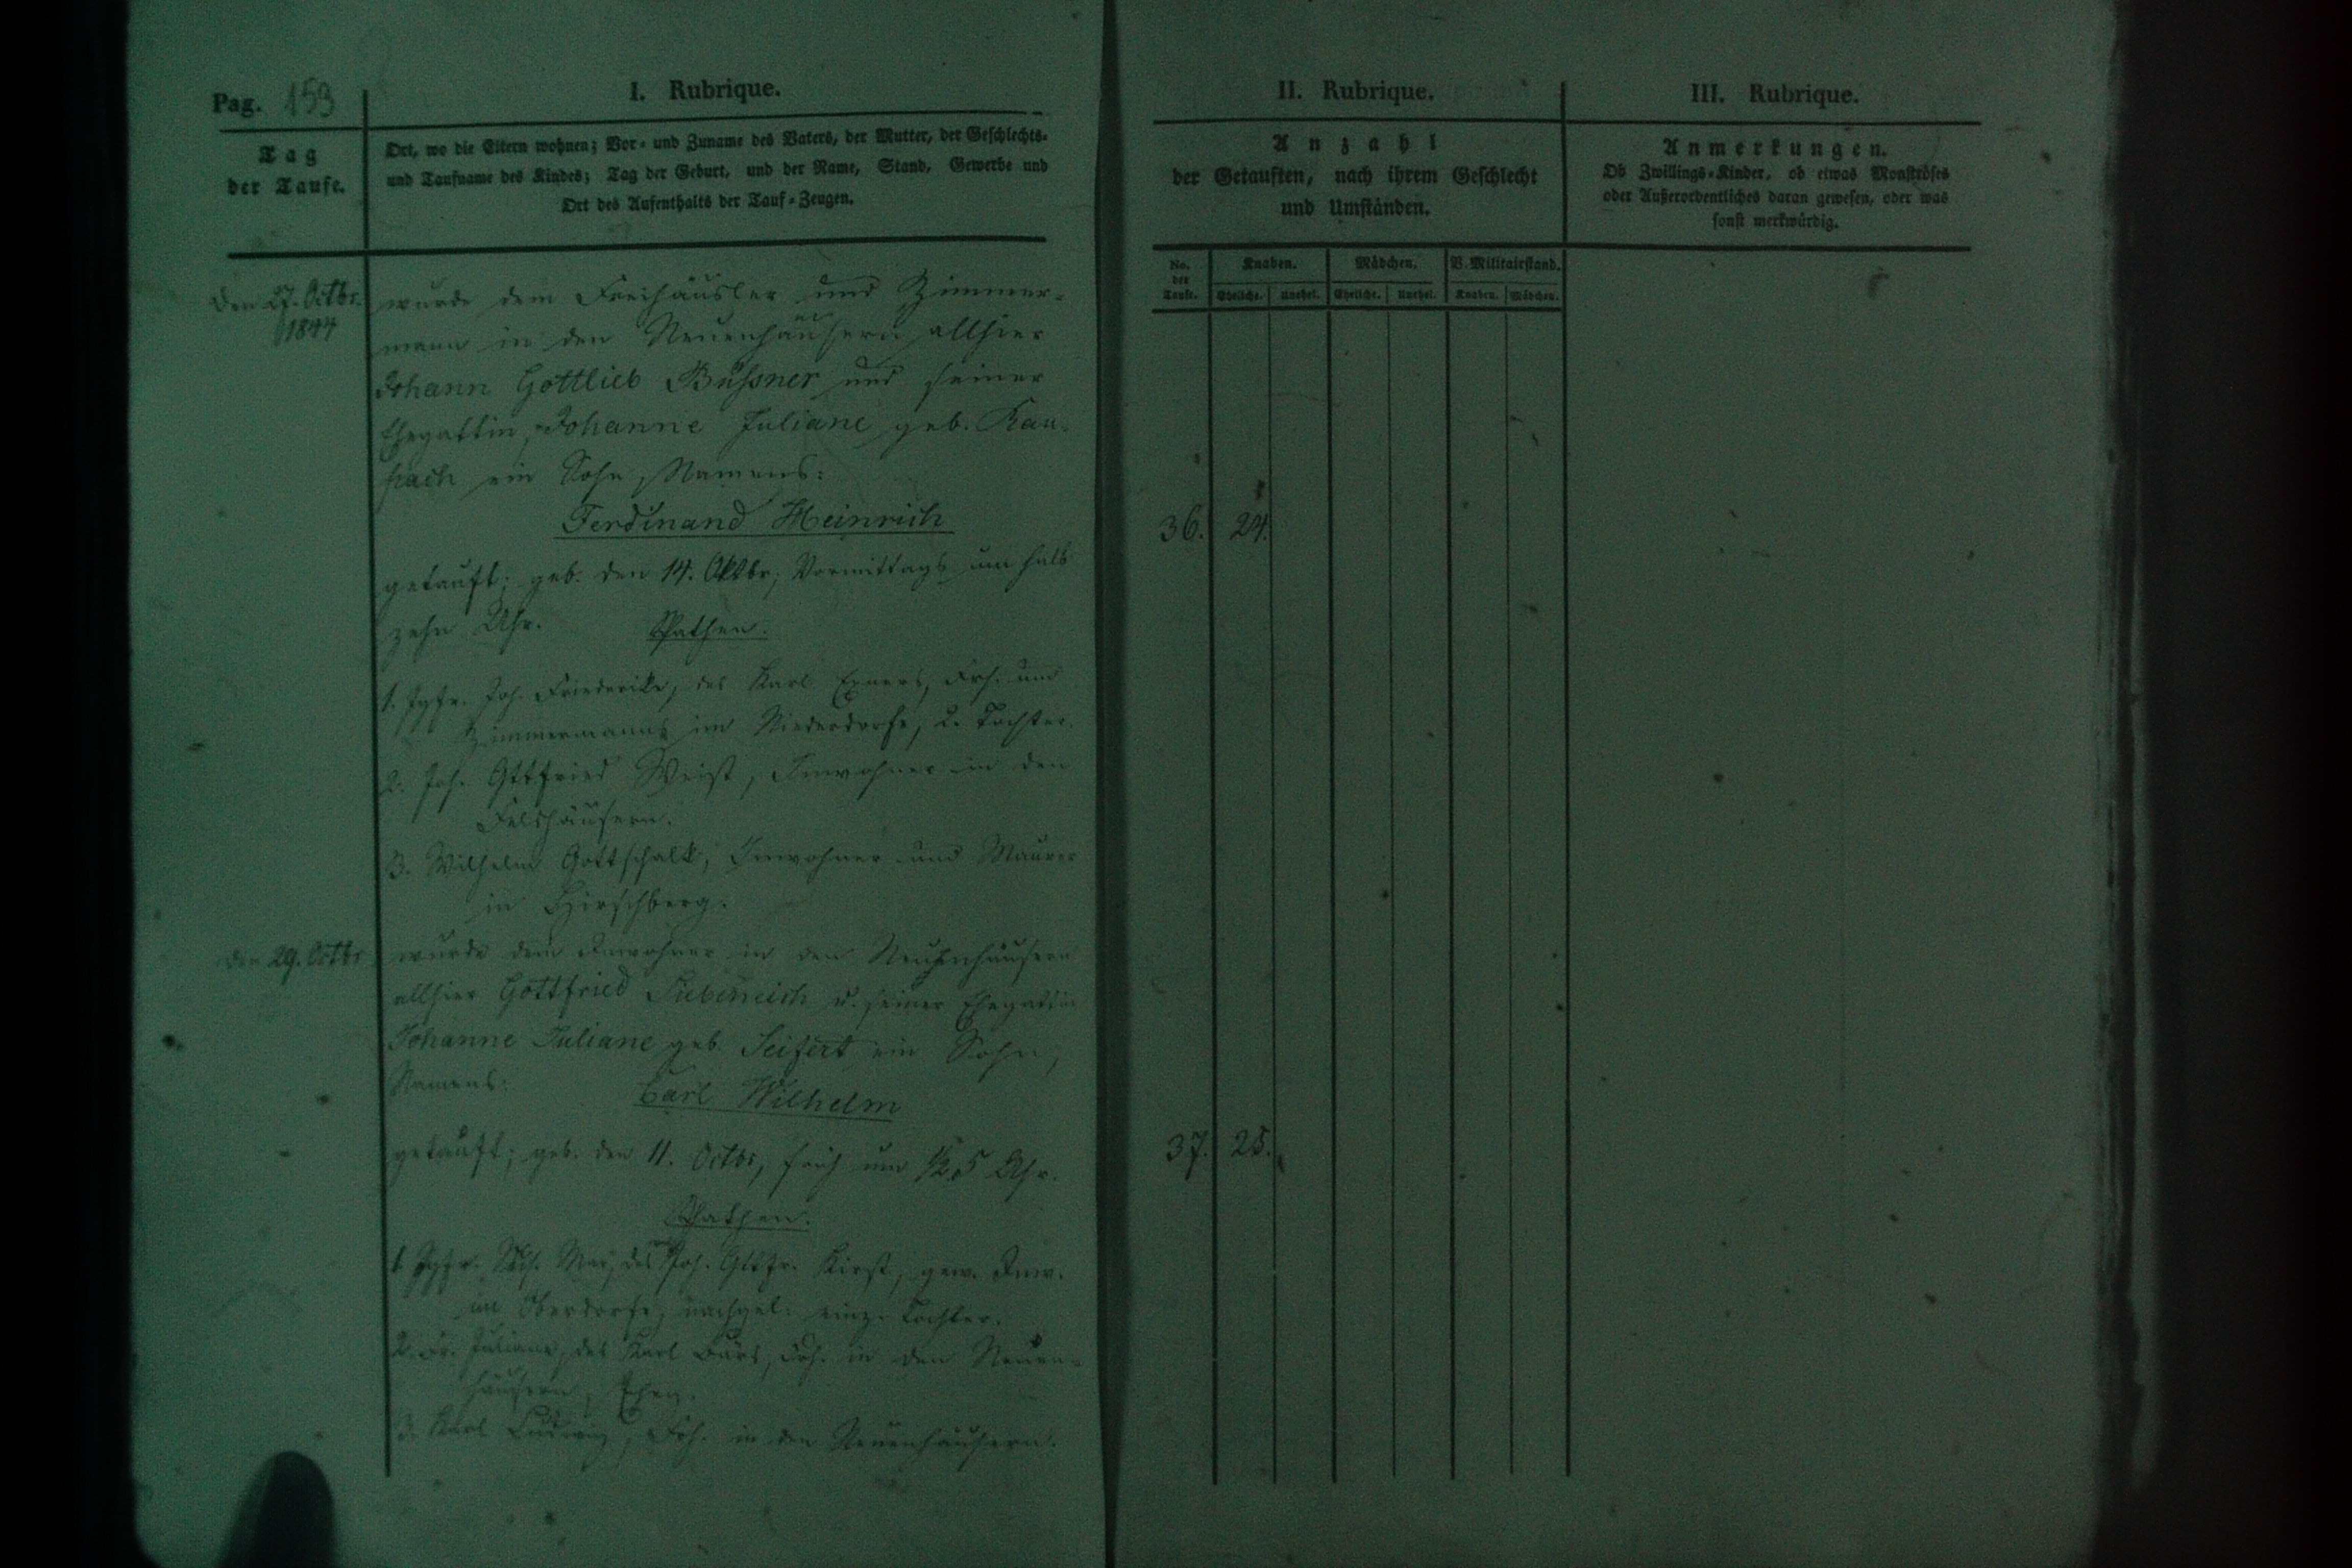 Pag. 153
I. Rubrique.
Tag
der Taufe.
Ort, wo die Eltern wohnen; Vor- und Zuname des Vaters, der Mutter, der Geschlechts-
und Taufname des Kindes; Tag der Geburt, und der Name, Stand, Gewerbe und
Ort des Aufenthalts der Tauf-Zeugen.
Den 27. Octbr.
1844
wurde dem Freihäusler und Zimmer-
mann in den Neuenhäusern allhier
Johann Gottlieb Büssner und seiner
Ehegattin, Johanne Juliane geb. Kau-
ein Sohn, Namens:
Ferdinand Heinrich
getauft; geb. den 14. Oktbr, Vormittags um halb
zehn Uhr. Pathen.
1. Jgfr. Joh. Friederike, des Karl Exners, Frh. und
Zimmermanns im Niederdorfe, Tochter.
2. Joh. Gttfried Weist, Inwohner in den
Felshäusern.
3. Wilhelm Gottschalk, Inwohner und Maurer
in Hirschberg.
Den 29. Octbr
wurde dem Inwohner in den Neuenhäusern
allhier Gottfried Siebeneich u. seiner Ehegattin
Johanne Juliane geb. Seifert ein Sohn,
Namens:
Carl Wilhelm
getauft; geb. den 11. Octbr, früh um ½5 Uhr.
Pathen.
1. Jgfr. des Joh. Gttfr. Kirst, gew. Inw.
im Oberdorfe, nachgel. einz. Tochter.
2. Fr. Juliane, des Karl in den Neuen-
häusern, Eheg.
3. Karl Ludwig, Frh. in den Neuenhäusern.
II. Rubrique.
Anzahl
der Getauften, nach ihrem Geschlecht
und Umständen.
No. der Taufe.
Knaben. Mädchen. V. Militairstand.
Eheliche. Unehel. Eheliche. Unehel. Knaben. Mädchen.
36. 24.
37. 25.
III. Rubrique.
Anmerkungen.
Ob Zwillings-Kinder, ob etwas Monströses
oder Außerordentliches daran gewesen, oder was
sonst merkwürdig.